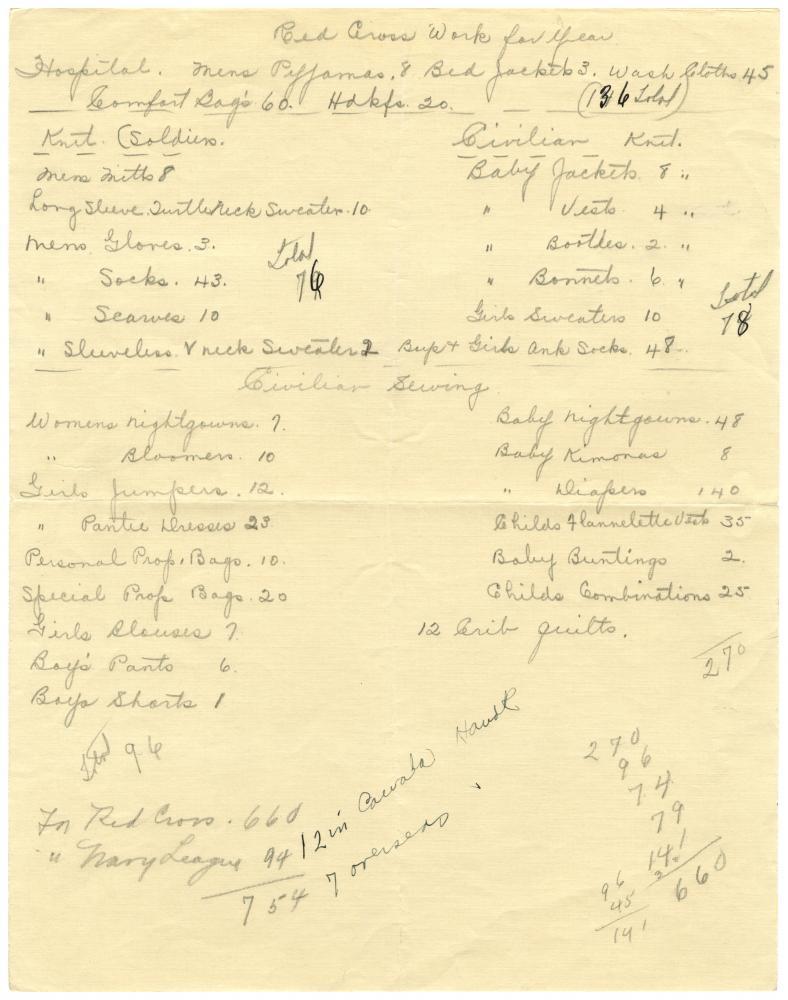 Red Cross Work for Year
Hospital. Mens Pyjamas. 8 Bed Jackets 3. Wash Cloths 45
Comfort Bags 60. Hdkfs. 20. (136 Total)
Knit. (Soldiers.
Mens Mitts 8
Long Sleeve Turtle Neck Sweater. 10
Mens Gloves. 3.
" Socks. 43.
" Scarves 10
" Sleeveless V neck Sweaters 2
Total
76
Civilian Knit.
Baby Jackets 8 "
" Vests 4 "
" Bootees. 2. "
" Bonnets. 6. "
Girls Sweaters 10
Boys + Girls Ank Socks. 48.
Total
78
Civilian Sewing
Womens Nightgowns. 7.
" Bloomers. 10
Girls Jumpers. 12.
" Pantie Dresses 23
Personal Prop. Bags. 10.
Special Prop Bags. 20
Girls Blouses 7
Boy's Pants 6.
Boys Shorts 1
Total 96
Baby Nightgowns. 48
Baby Kimonas 8
" Diapers 140
Childs Flannelette Vests 35
Baby Buntings 2.
Childs Combinations 25
12 Crib Quilts.
270
For Red Cross. 660
" Navy League 94
754
12 in Canada
7 overseas
270
96
74
79
141
660
96
45
141